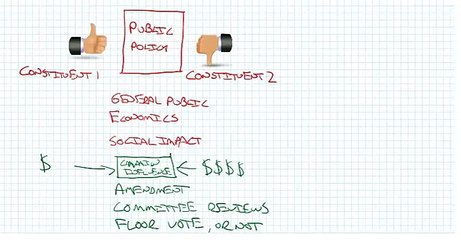 PUBLIC
POLICY
CONSTITUENT 1
CONSTITUENT 2
GENERAL PUBLIC
ECONOMICS
SOCIAL IMPACT
$
$$$$
AMENDMENT
COMMITTEE REVIEWS
FLOOR VOTE, OR NOT